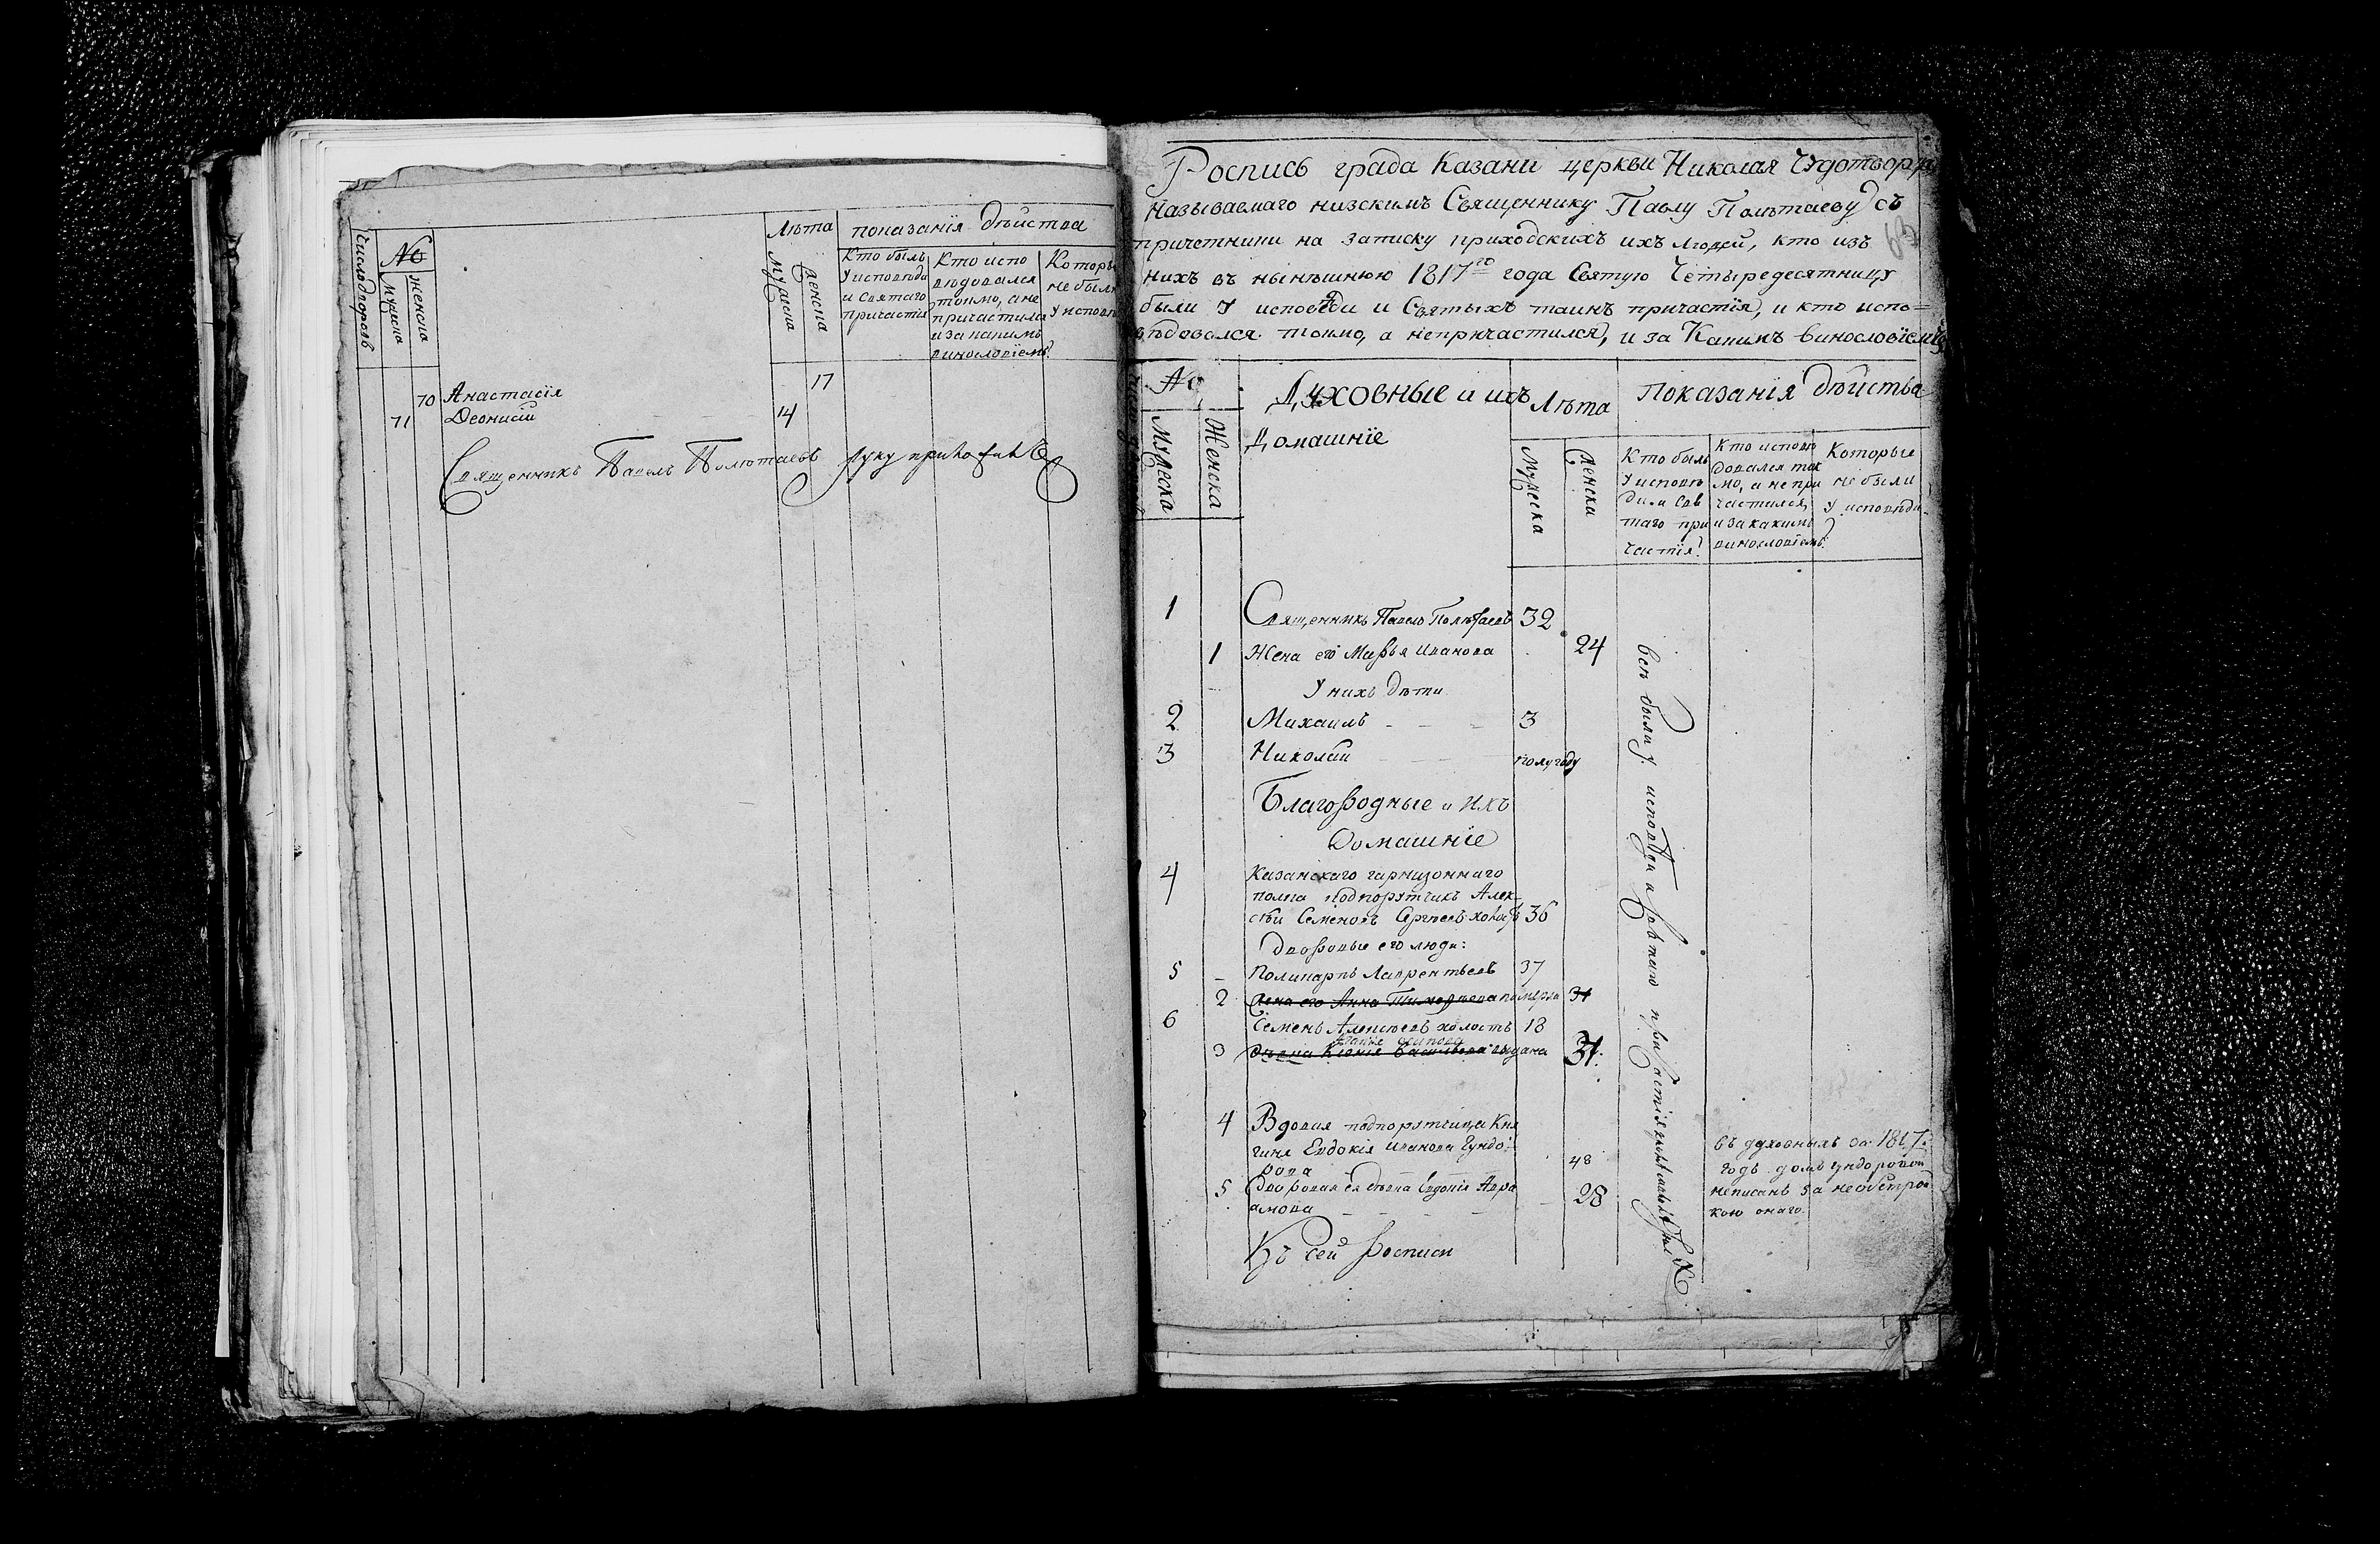 Число дворовъ
№
Мужеска
Женска
Лѣта
Мужеска
Женска
показанія дѣйства
Кто былъ
у исповѣди
и святаго
причастія
Кто испо
вѣдовался
токмо, а не
причастился
и за какимъ
винословіемъ?
Которы
не были
у исповѣ
70 Анастасія 17
71 Деонисій 14
Священникъ Павелъ Полютаевъ руку приложилъ
63
Роспись града Казани церкви Николая Чудотворца
называемаго низскимъ Священнику Павлу Полѣтаеву съ
причетники на записку приходскихъ ихъ людей, кто изъ
нихъ въ нынѣшнюю 1817го года Святую Четыредесятницу
были у исповѣди и Святыхъ таинъ причастїя, и кто испо=
вѣдовался токмо, а непричастился, и за Какимъ винословїемъ
№
Мужеска
Женска
Духовные и ихъ
Домашнїе
Лѣта
Мужеска
Женска
Показанїя дѣйства
Кто былъ
у исповѣ
ди и Свя
таго при
частїя?
Кто исповѣ
довался ток
мо, а не при
частился,
и за какимъ
винословїемъ?
Которые
не были
у исповѣди?
1 Священникъ Павелъ Полѣтаевъ 32
1 Жена его Марья Иванова 24
У нихъ дѣти
2 Михаилъ 3
3 Николай полугоду
Благородные и Ихъ
Домашніе
4 Казанскаго гарнизоннаго
полка подпорутчикъ Алек
сѣй Семеновъ 36
дворовые его люди:
5 Поликарпъ Лаврентьевъ 37
2 Жена его Анна Тимофѣева померла 31
6 Семенъ Алексѣевъ холостъ 18
3 дѣвка Ксенія Васильева выдана 31.
4 Вдовая подпорутчица Кня
гиня Евдокія Иванова Гундо=
рова 48
5 Дворовая ея дѣвка Евдокія Авра
амова 28
Къ сей росписи
всѣ были у исповѣди и святаго причастія
въ духовныхъ за 1817.
годъ домъ Гундоровой
не писанъ за необстрой
кою онаго.